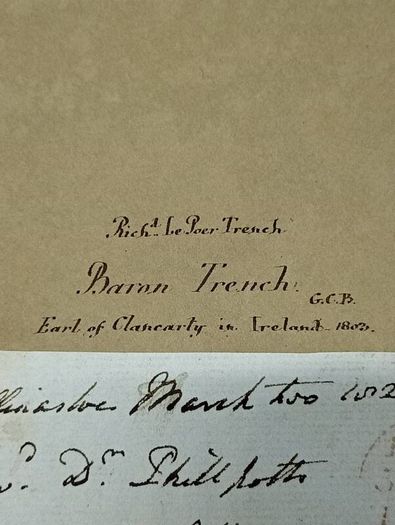 Rich.d Le Poer Trench
Baron Trench.
G.C.B.
Earl of Clancarty in Ireland 1803.
March two
Dr. Phillpotts